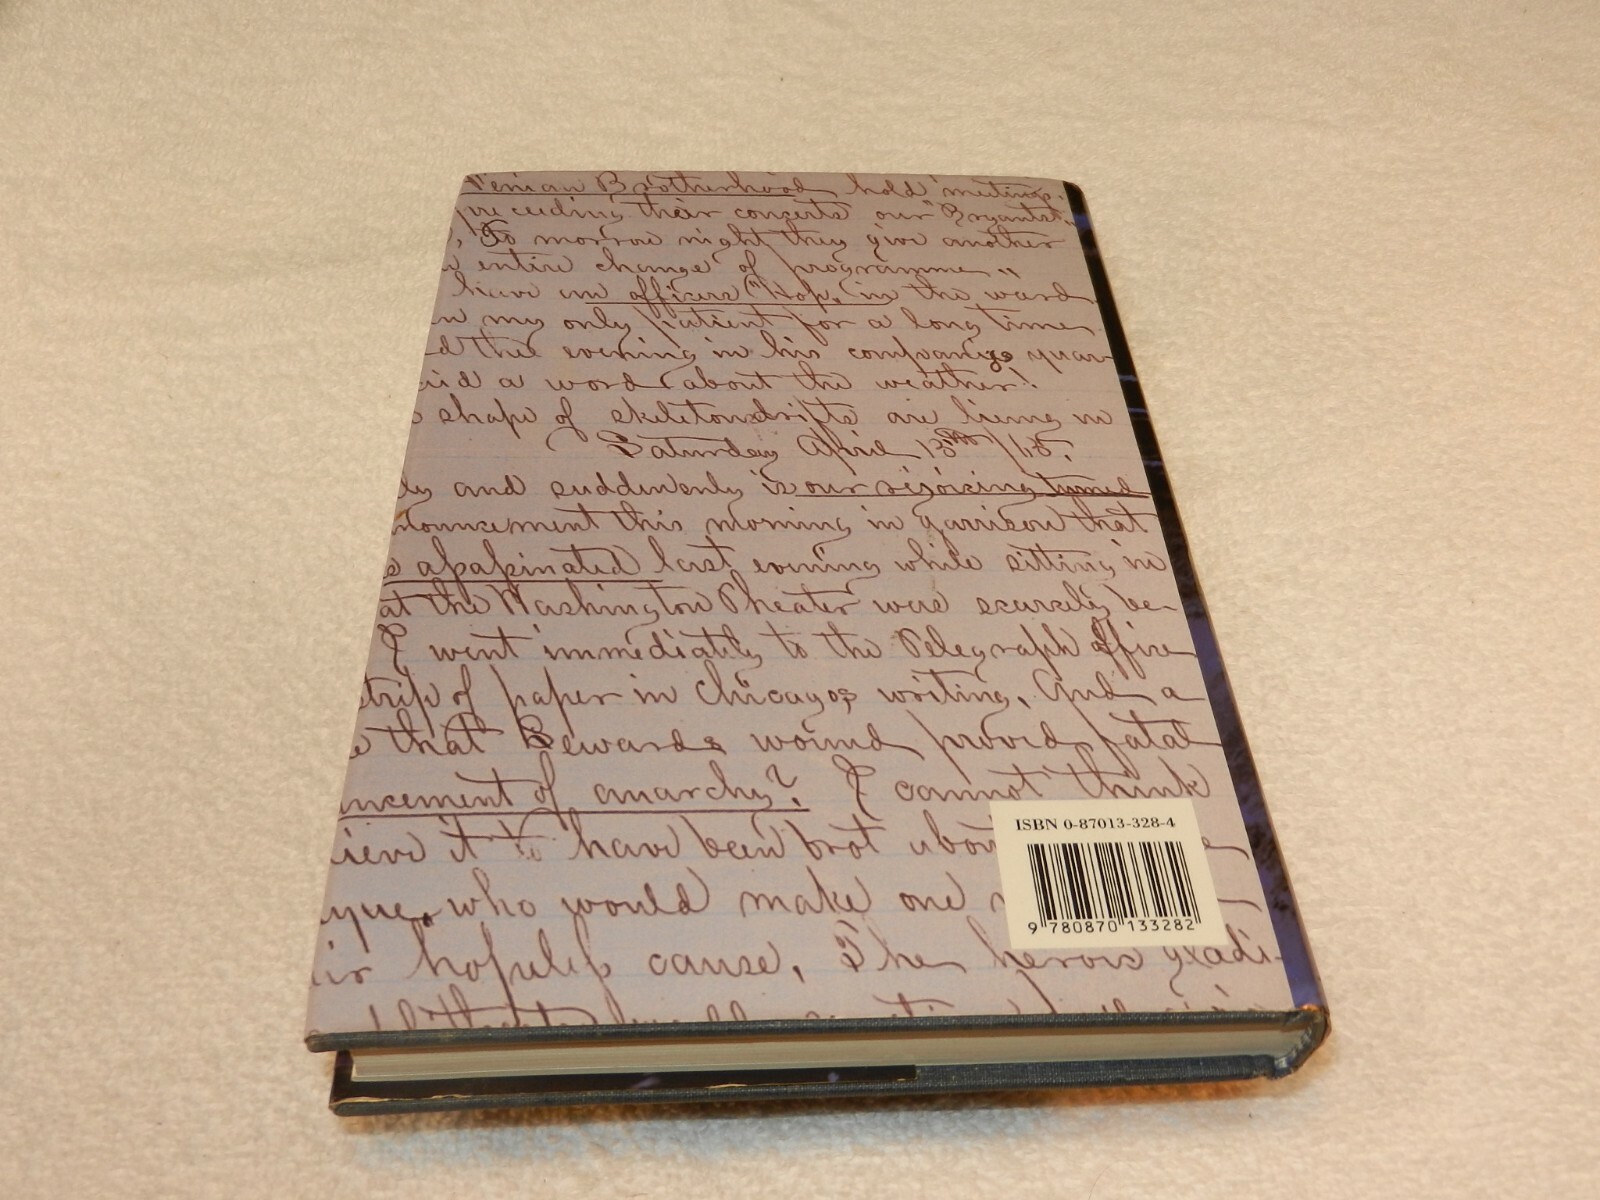 Fenian Brotherhood hold meetings.
preceeding their concerts our "Bryants"
, To morrow night they give another
entire change of programme "
have an officers "Hop" in the ward
n my only patient for a long time
d this evening in his companys quar
aid a word about the weather!
shape of skeleton drifts are living in
Saturday April 15th /65.
ly and suddenly is our rejoicing turned
nouncement this morning in garrison that
s assassinated last evening while sitting in
at the Washington Theater was scarcely be-
I went immediately to the Telegraph office
strip of paper in Chicagos writing, And a
e that Sewards wound proved fatal
ncement of anarchy? I cannot think
ieve it to have been brot abou e
gue, who would make one
ir hopeless cause, The heroic gladi-
ISBN 0-87013-328-4
9 780870 133282